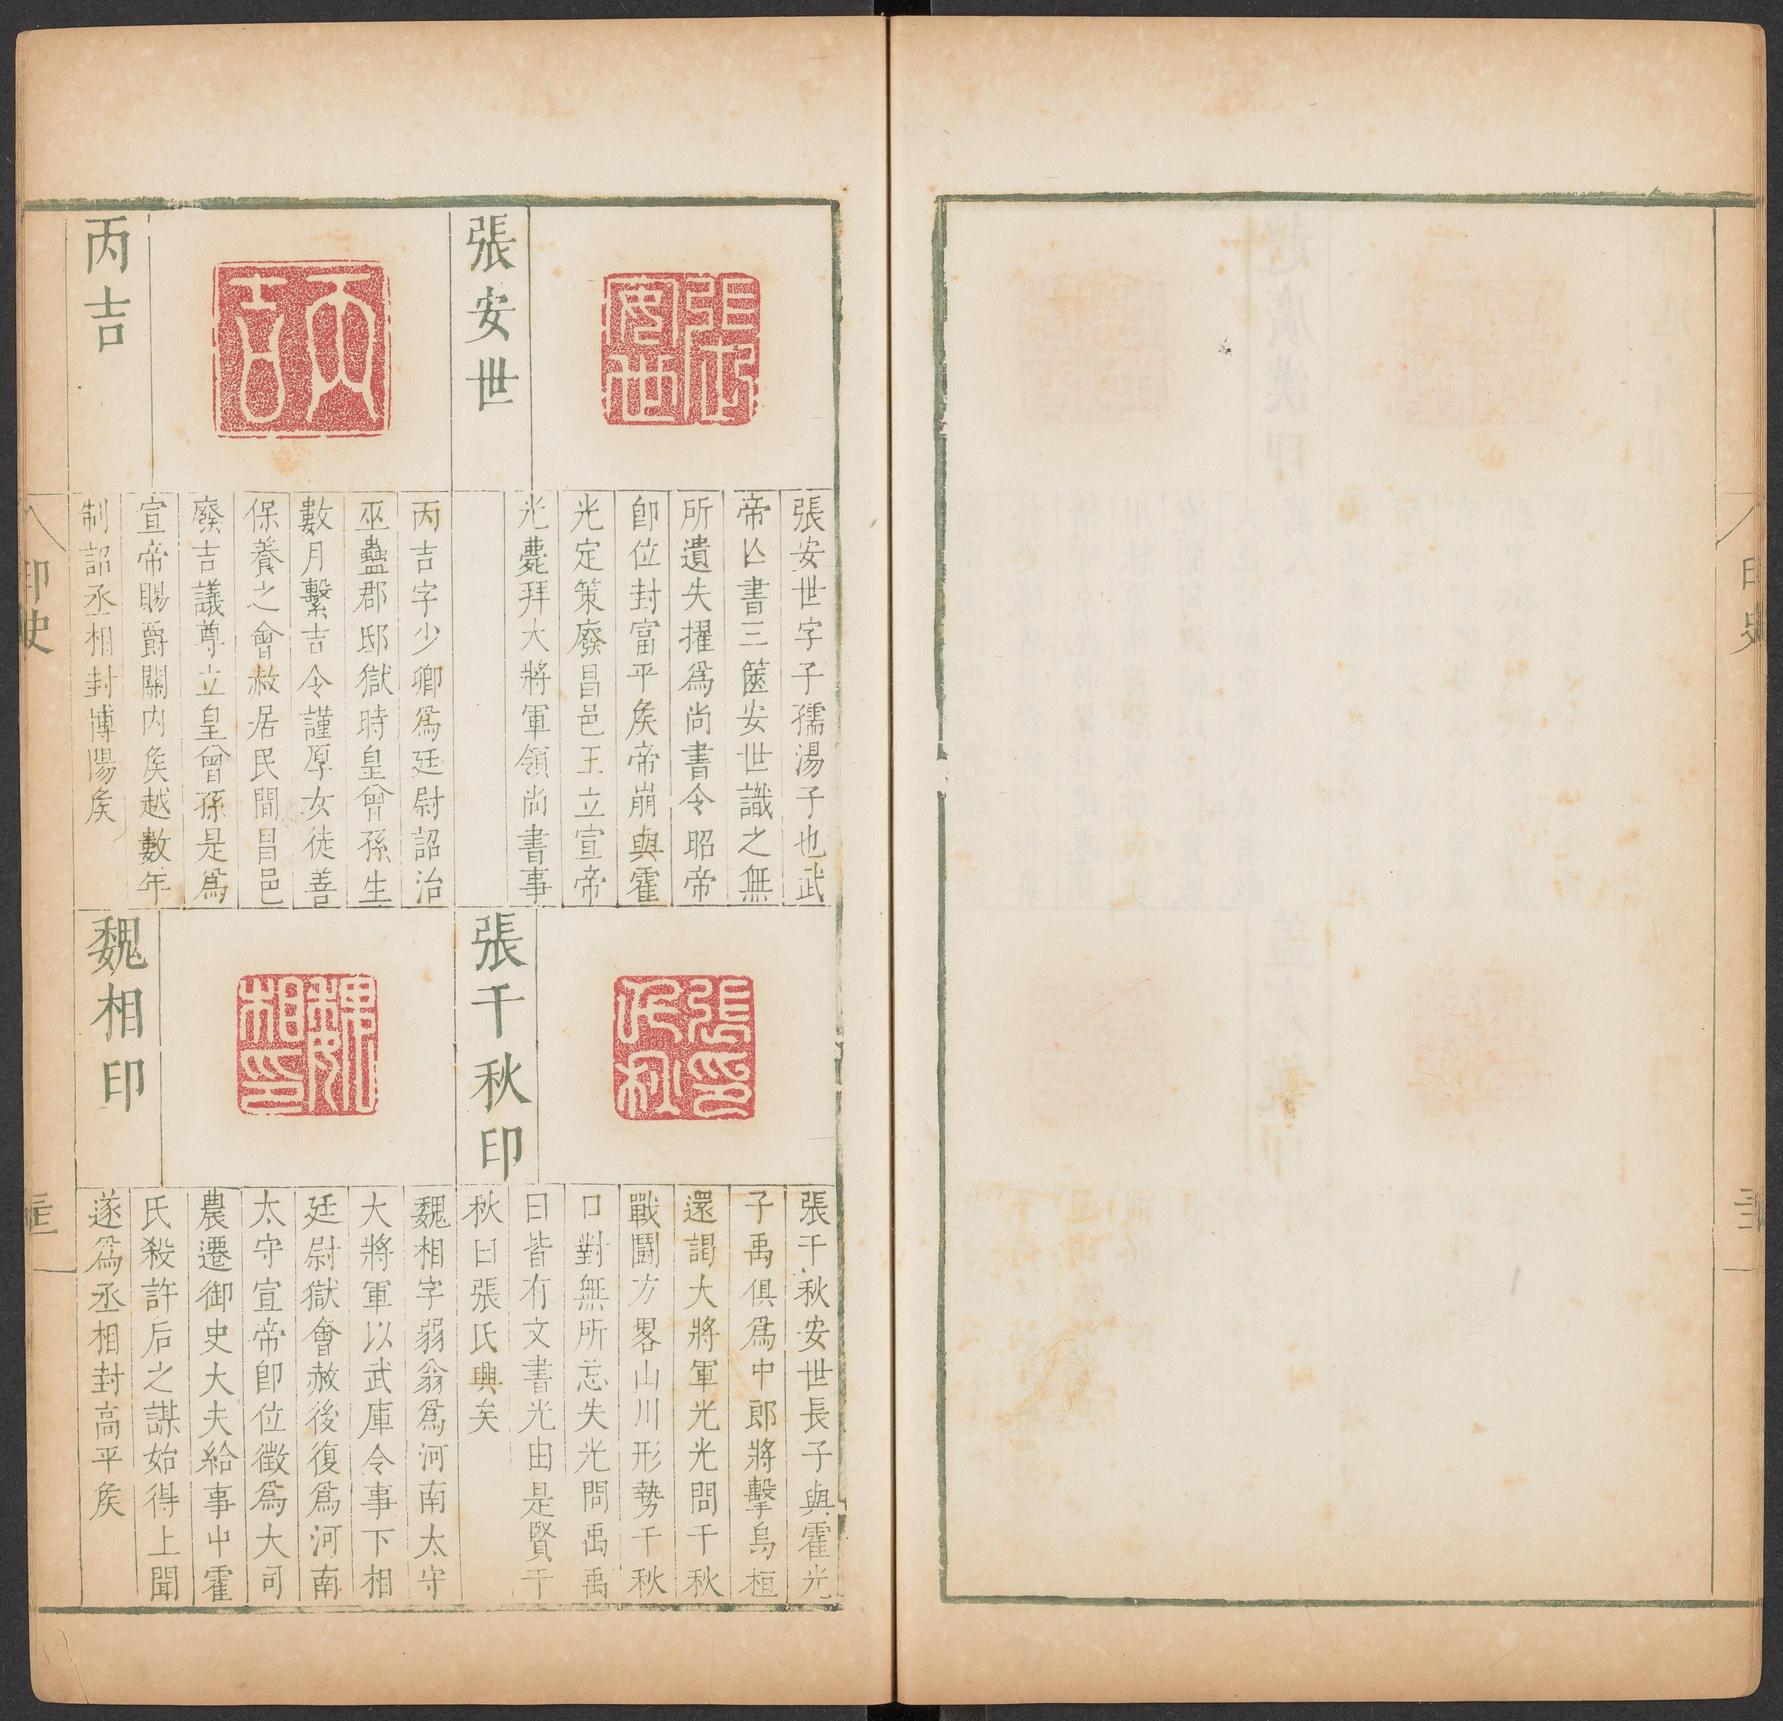 張安世
張安世字子孺湯子也武
帝亾書三篋安世識之無
所遺失擢爲尚書令昭帝
卽位封富平矦帝崩與霍
光定策廢昌邑王立宣帝
光薨拜大將軍領尚書事
丙吉
丙吉字少卿爲廷尉詔治
巫蠱郡邸獄時皇曾孫生
數月繫吉令謹厚女徒善
保養之會赦居民間昌邑
廢吉議尊立皇曾孫是爲
宣帝賜爵關內矦越數年
制詔丞相封博陽矦
張千秋印
張千秋安世長子與霍光
子禹俱爲中郎將擊烏桓
還謁大將軍光光問千秋
戰鬪方畧山川形勢千秋
口對無所忘失光問禹禹
曰皆有文書光由是賢千
秋曰張氏興矣
魏相印
魏相字弱翁爲河南太守
大將軍以武庫令事下相
廷尉獄會赦後復爲河南
太守宣帝卽位徵爲大司
農遷御史大夫給事中霍
氏殺許后之謀始得上聞
遂爲丞相封高平矦
印史
印史